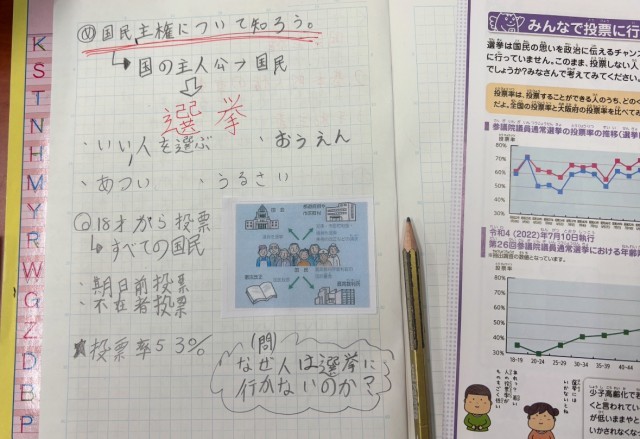 K
S
T
N
H
M
Y
R
W
G
Z
D
B
P
め 国民主権について知ろう。
↳ 国の主人公→国民
選挙
・いい人を選ぶ ・おうえん
・あつい ・うるさい
18才から投票
↳すべての国民
・期日前投票
・不在者投票
★投票率53%
(問)
なぜ人は選挙に
行かないのか?
みんなで投票に行
選挙は国民の思いを政治に伝えるチャン
に行っていません。このまま、投票しない人
でしょうか?みなさんで考えてみてください。
投票率は、投票することができる人のうち、どのく
だよ。全国の投票率と大阪府の投票率を比べてみ
参議院議員通常選挙の投票率の推移(選挙
投票率
80%
70%
60%
50%
40%
30%
令和4(2022)年7月10日執行
第26回参議院議員通常選挙における年齢
投票率
80%
70%
60%
50%
40%
30%
18-19 20-24 25-29 30-34 35-39 40-44
選挙には
いかないしね
少子高齢化で若
くと言われてい
が低いままやと
いかされなくなっ